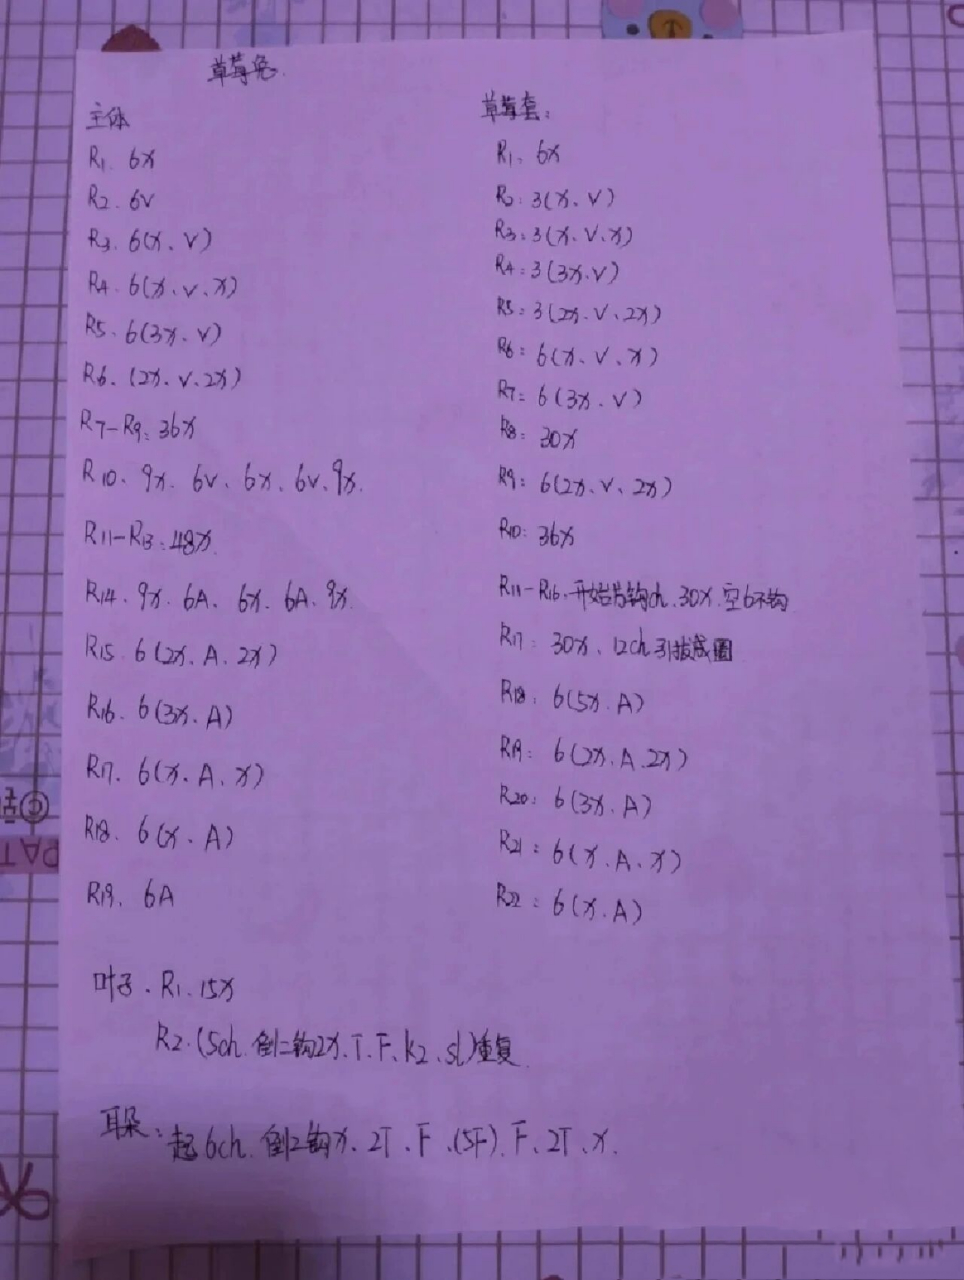 草莓兔.
主体
R1. 6x
R2. 6v
R3. 6(x. v)
R4. 6(x. v. x)
R5. 6(3x. v)
R6. (2x. v. 2x)
R7-R9: 36x
R10. 9x. 6v. 6x. 6v. 9x.
R11-R13: 48x
R14. 9x. 6A. 6x. 6A. 9x.
R15. 6(2x. A. 2x)
R16. 6(3x. A)
R17. 6(x. A. x)
R18. 6(x. A)
R19. 6A
草莓套:
R1. 6x
R2: 3(x. v)
R3: 3(x. v. x)
R4: 3(3x. v)
R5: 3(2x. v. 2x)
R6: 6(x. v. x)
R7: 6(3x. v)
R8: 30x
R9: 6(2x. v. 2x)
R10: 36x
R11-R16. 开始片钩ch. 30x. 空6不钩
R17: 30x. 12ch引拔成圈
R18. 6(5x. A)
R19: 6(2x. A. 2x)
R20: 6(3x. A)
R21: 6(x. A. x)
R22: 6(x. A)
叶子. R1. 15x
R2. (5ch. 倒二钩2x. T. F. k2. sl)重复
耳朵: 起6ch. 倒2钩x. 2T. F. (5F). F. 2T. x.
PAT